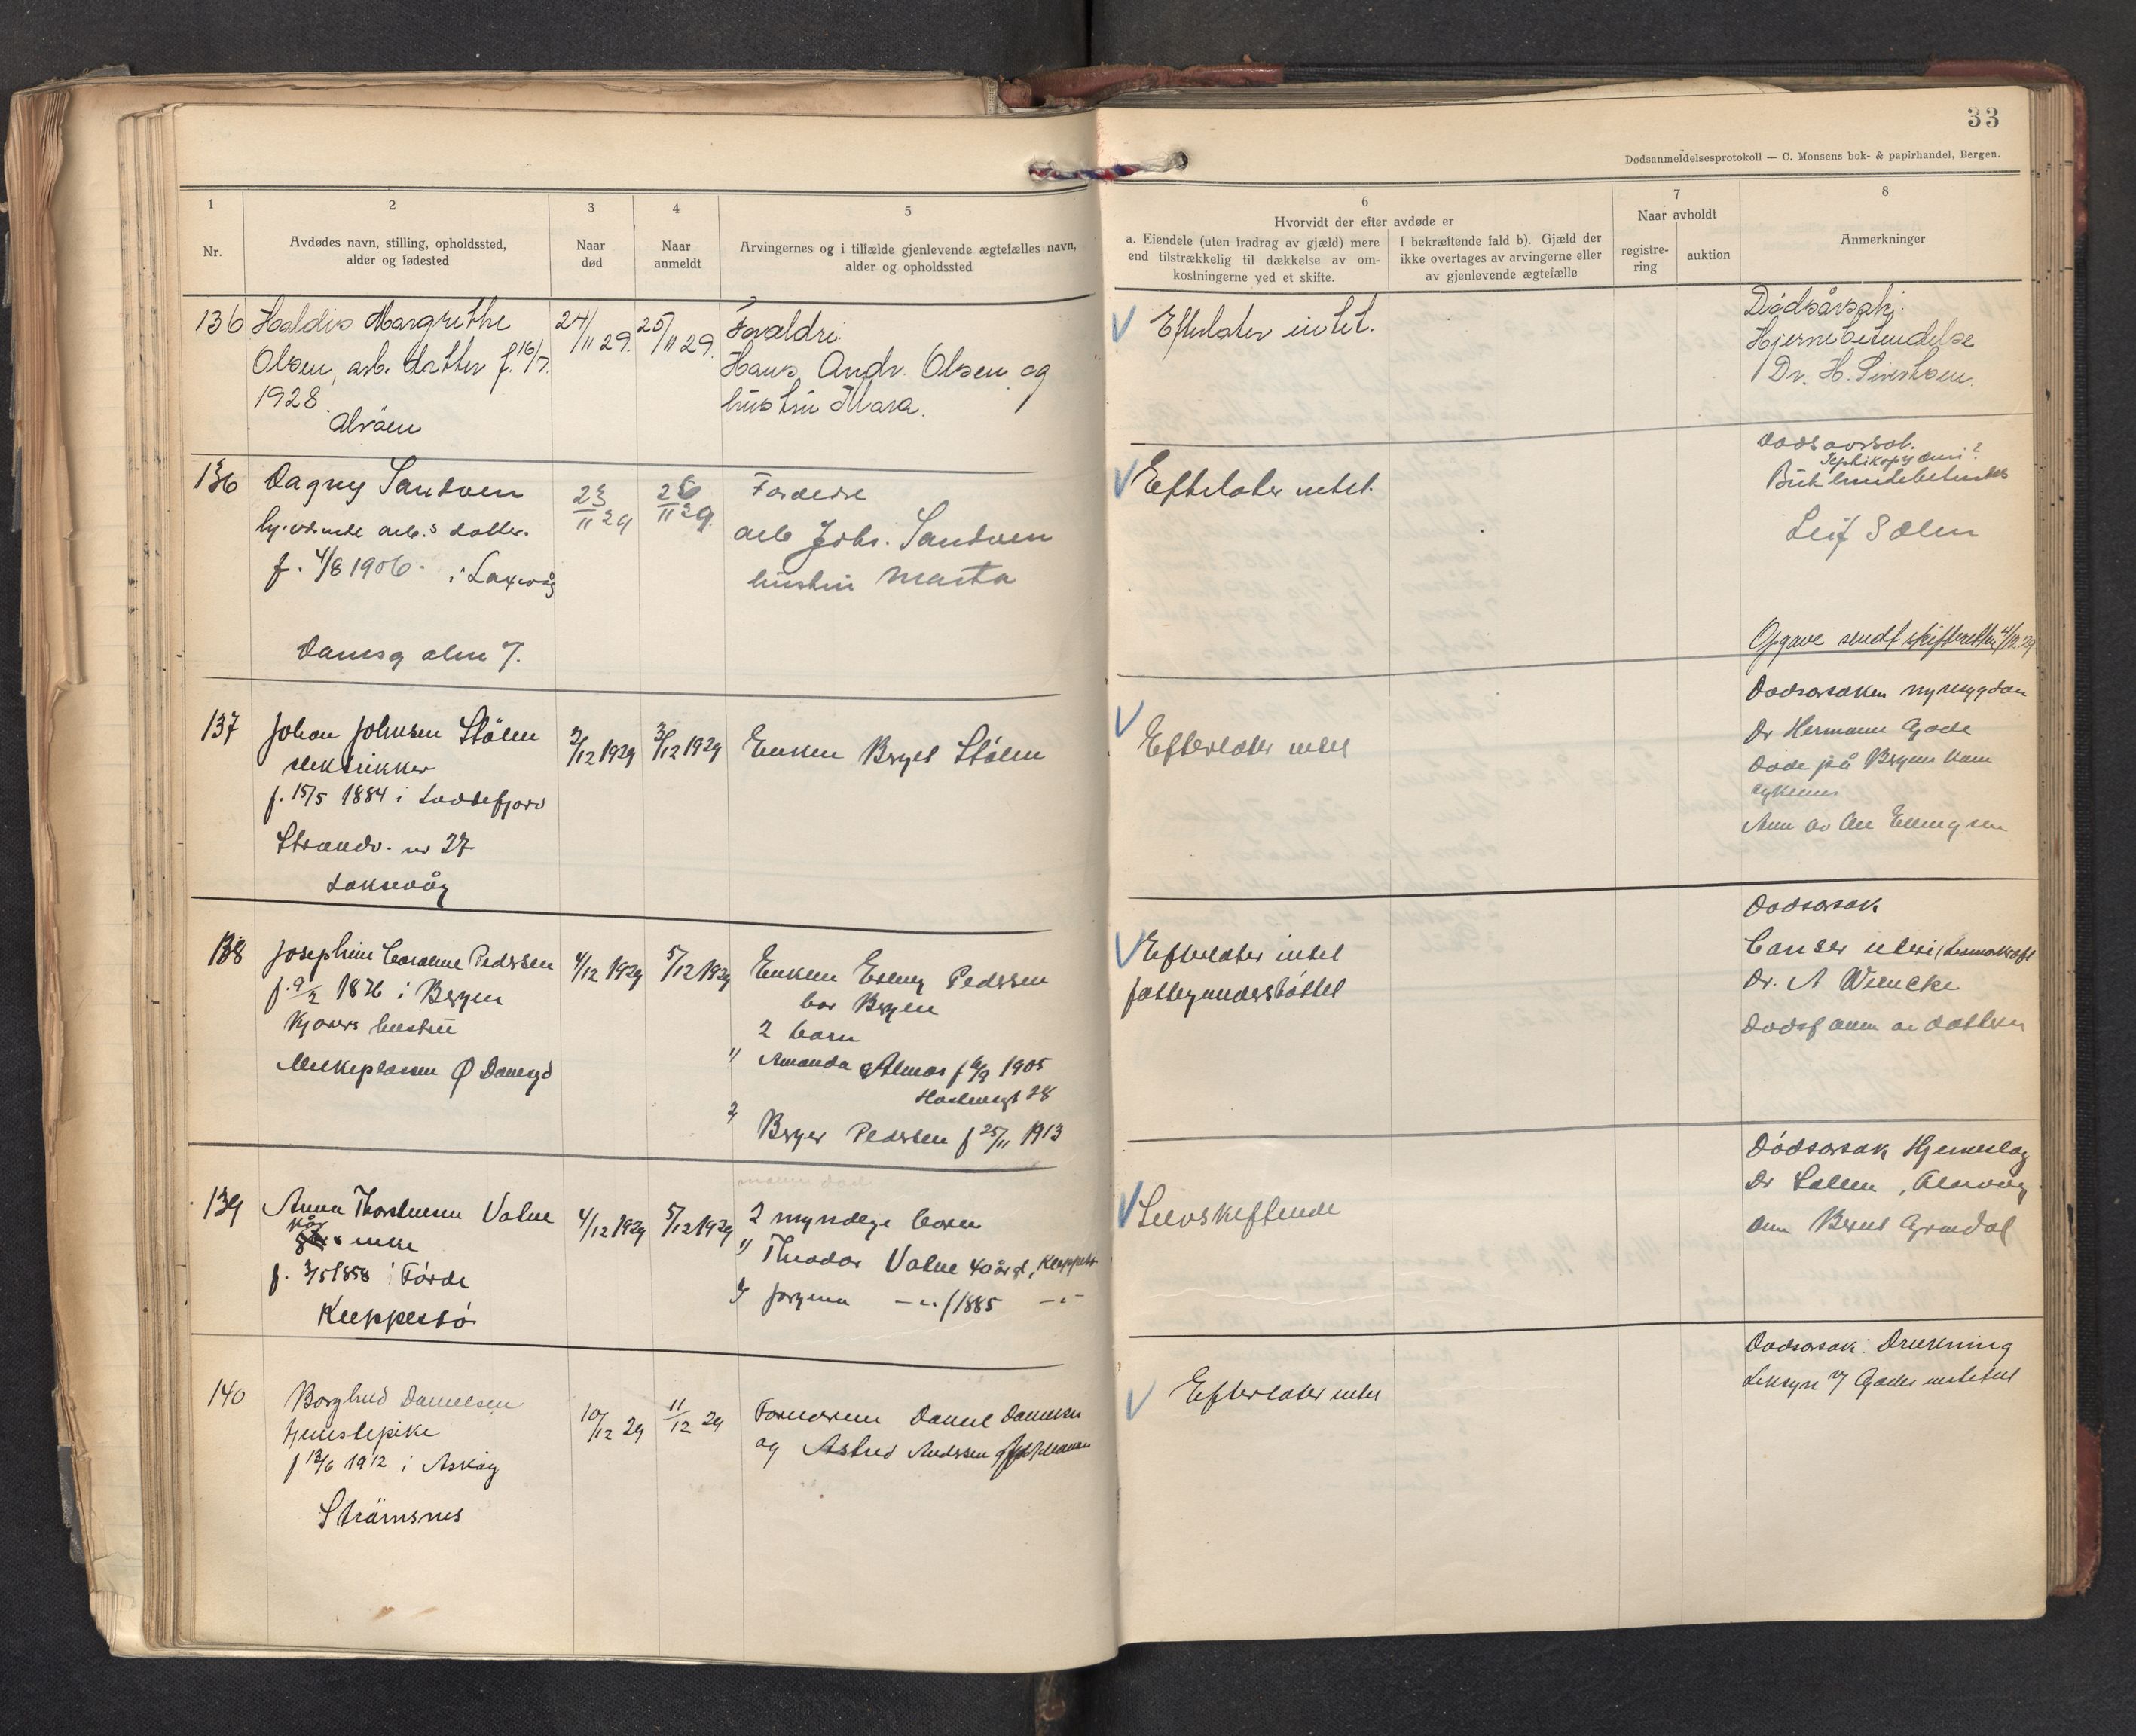 33
Dødsanmeldelsesprotokoll — C. Monsens bok- & papirhandel, Bergen.
1
Nr.
2
Avdødes navn, stilling, opholdssted,
alder og fødested
3
Naar
død
4
Naar
anmeldt
5
Arvingernes og i tilfælde gjenlevende ægtefælles navn,
alder og opholdssted
6
Hvorvidt der efter avdøde er
a. Eiendele (uten fradrag av gjæld) mere
end tilstrækkelig til dækkelse av om-
kostningerne ved et skifte.
I bekræftende fald b). Gjæld der
ikke overtages av arvingerne eller
av gjenlevende ægtefælle
7
Naar avholdt
registre-
ring
auktion
8
Anmerkninger
136
Haldis Margrethe
Olsen, arb. datter f. 16/7
1928
Alvøen
24/11 29.
25/11 29.
Foreldre:
Hans Andr. Olsen og
hustru Mara.
Efterlater intet.
Dødsårsak:
Hjernebetendelse
Dr. H. Sivertsen
136
Dagny Sandven
hj. værende arb.s datter
f. 4/8 1906 i Laxevåg
Damsg alm 7.
23/11 29
26/11 29
Foreldre
arb Johs. Sandven
hustru Marta
Efterlater intet.
Dødsorsak.
Leif Solem
Opgave sendt skifteretten 4/12.29
137
Johan Johnsen Stølen
elektrikker
f. 15/5 1884 i Loddefjord
Strandv. nr 27
Laksevåg
2/12 1929
3/12 1929
Enken Berget Stølen
Efterlater intet
Dødsorsaken nyresygdom
Dr Hermann Gade
Døde på Bergens Kom
sykehus
Anm av Ole Ellingsen
138
Josephine Caroline Pedersen
f. 9/2 1876 i Bergen
Kjørers hustru
Melkeplassen Ø Damsgd
4/12 1929
5/12 1929
Enkem Pedersen
bor Bergen
2 barn
1) Amanda Almas f 6/9 1905
28
2) Berger Pedersen f 25/11 1913
Efterlater intet
fattigunderstøttet
Dødsorsak
Cancer uteri
Dr. A Wiencke
Dødsf anm av datteren
139
Anna Thorstensen Vatne
enke
f. 3/5 1858 i Førde
Kleppestø
4/12 1929
5/12 1929
mannen død
2 myndige barn
1) Theodor Vatne 40 år gl, Kleppestø
2) Jørgine — " — f 1885 — " —
Selvskiftende
Dødsorsak Hjerneslag
Dr Sollem, Alvøen
Anm Bernt Grindal
140
Borghild Danielsen
tjenestepike
f 13/6 1912 i Askøy
Strømsnes
10/12 29
11/12 29
Forældrene Daniel Danielsen
og Astrid Andersen
Efterlater intet
Dødsorsak: Drukning
Liksyn v/ Gades institut